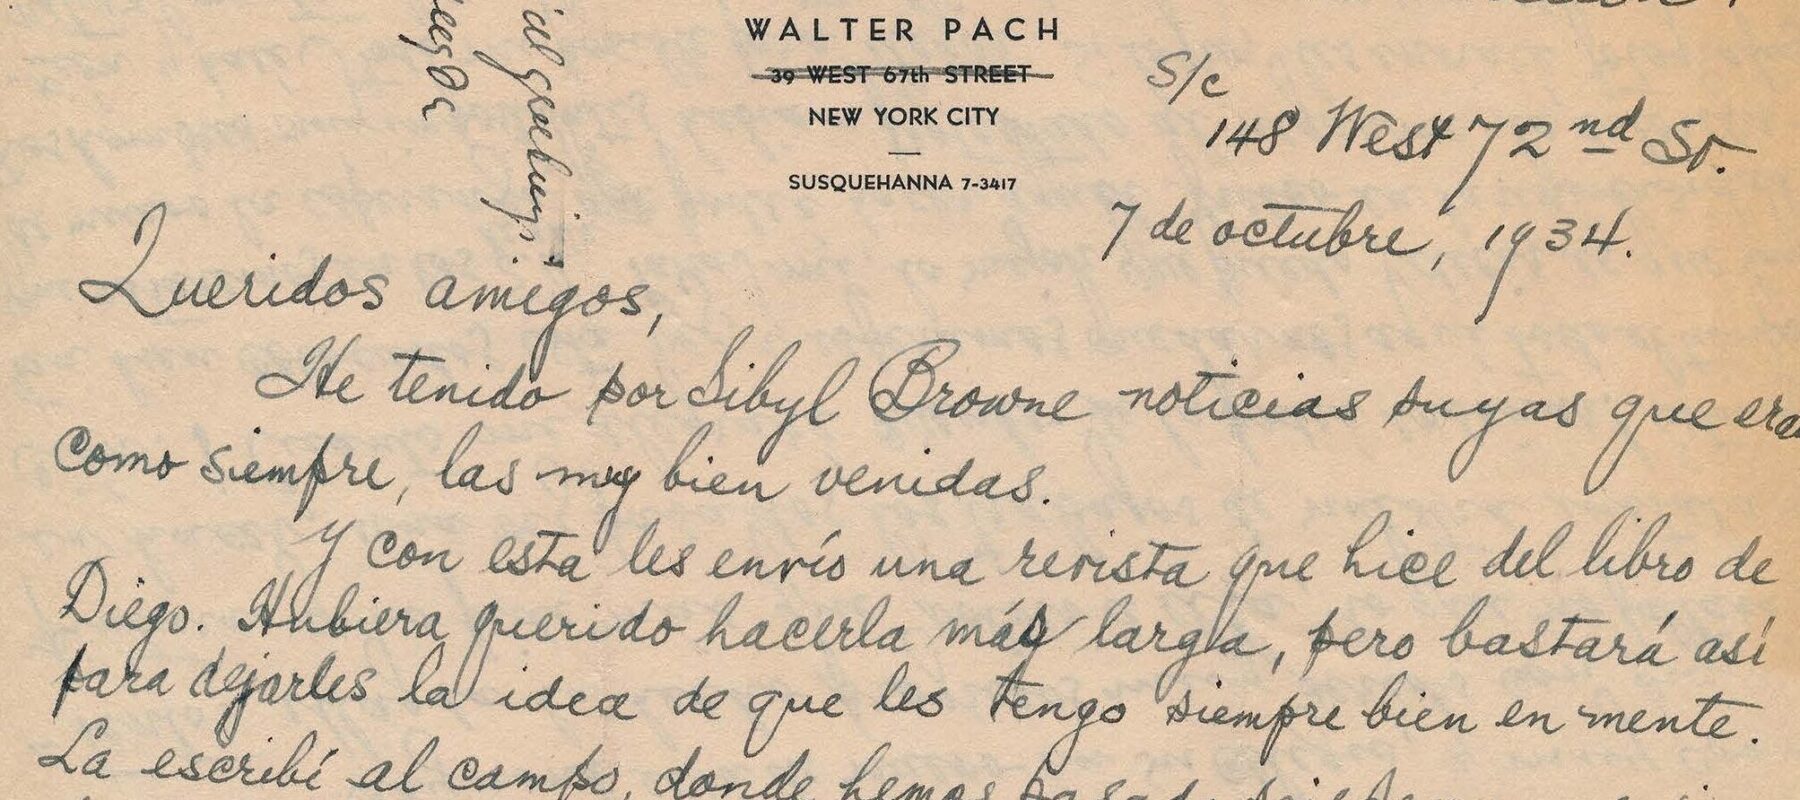 WALTER PACH
39 WEST 67th STREET
NEW YORK CITY
SUSQUEHANNA 7-3417
S/c
148 West 72nd St.
7 de octubre, 1934.
Queridos amigos,
He tenido por Sibyl Browne noticias suyas que eran
como siempre, las muy bien venidas.
Y con esta les envío una revista que hice del libro de
Diego. Hubiera querido hacerla más larga, pero bastará así
para dejarles la idea de que les tengo siempre bien en mente.
La escribí al campo, donde hemos